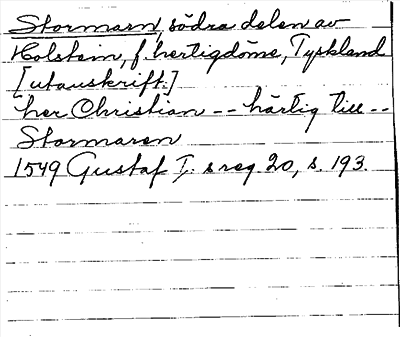 Stormarn, södra delen av
Holstein, f. hertigdöme, Tyskland
[utanskrift:]
her Christian -- härtig till --
Stormaren
1549 Gustaf I:s reg 20, s. 193.